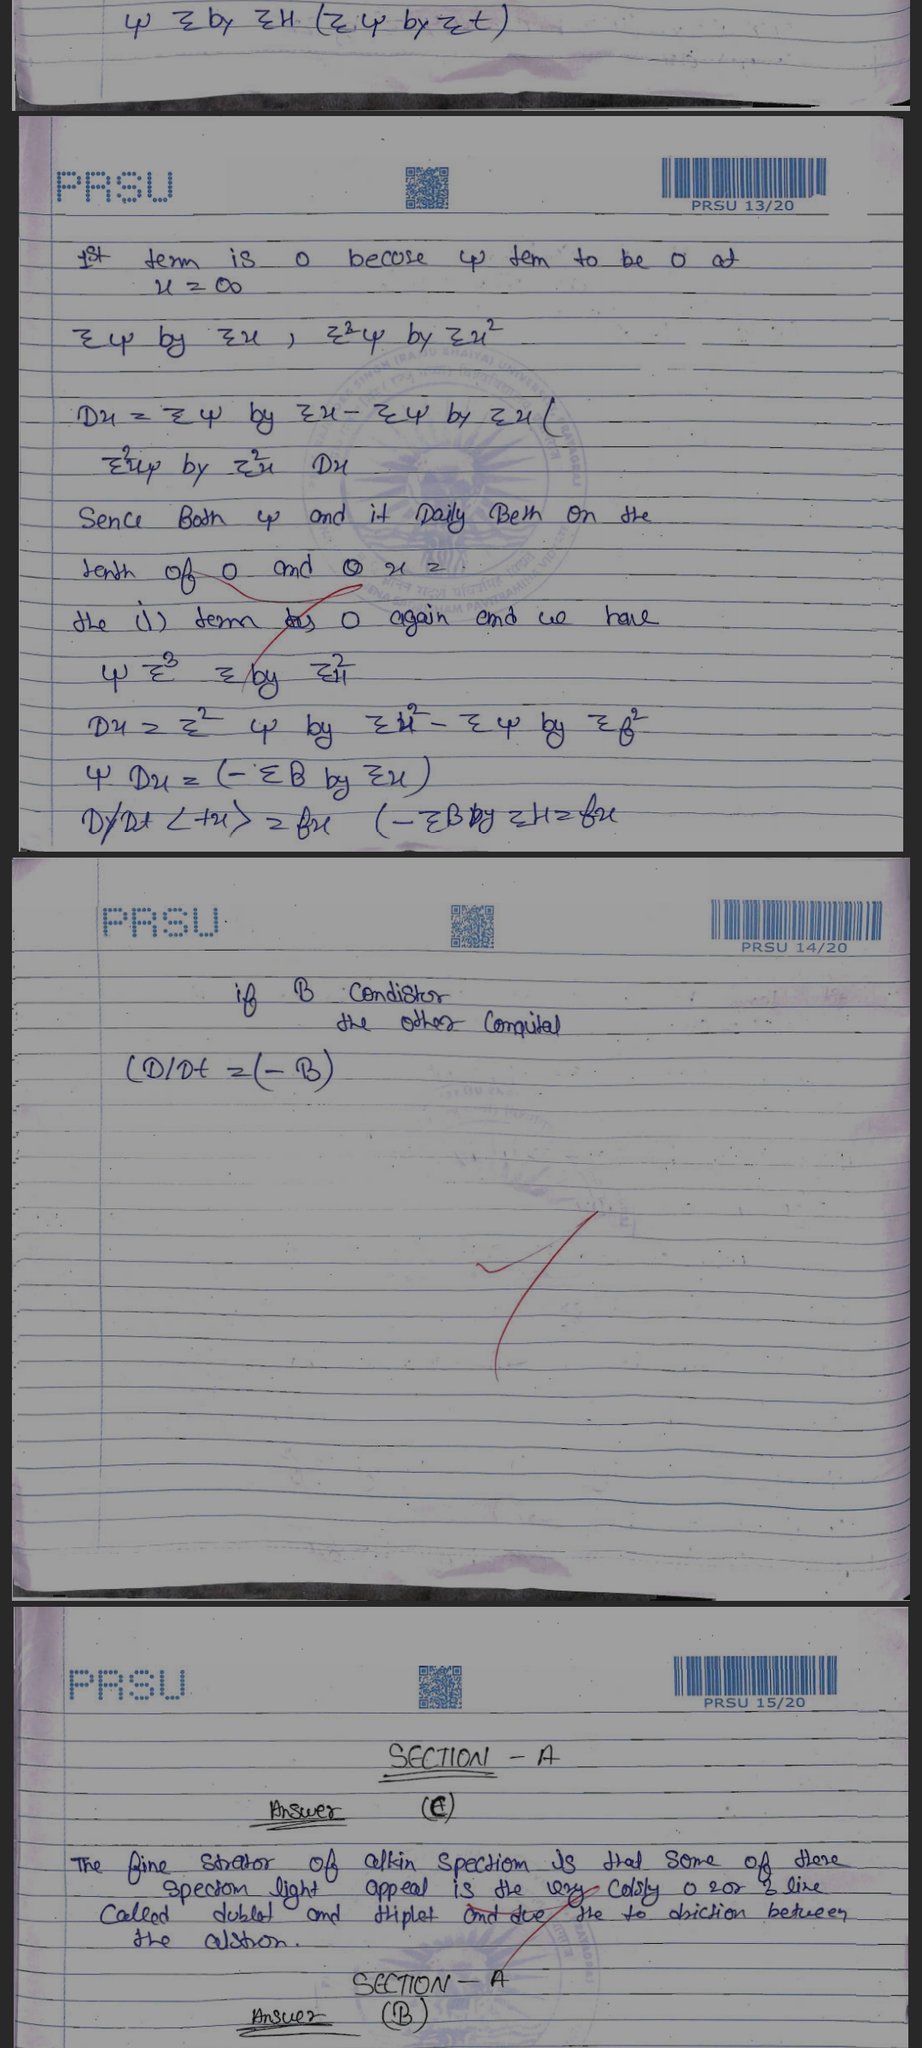 ψ Σ by ΣH (Σ ψ by Σt)
PRSU
PRSU 13/20
1st term is 0 becose ψ tem to be 0 at
x = ∞
Σψ by Σx, Σ²ψ by Σx²
Dx = Σ ψ by Σx - Σψ by Σx (
Σ²xψ by Σ²x Dx
Sence Both ψ and it Daily Beth on the
tenth of 0 and 0 x =
the (1) term 0 again and we have
ψ Σ³ Σ by Σx²
Dx = Σ² ψ by Σx² - Σ ψ by Σf²
ψ Dx = (- ΣB by Σx)
D/Dt <+x> = fx (- ΣB by ΣH = fx
PRSU
PRSU 14/20
if B Condistor
the other Comquital
(D/Dt = (- B)
PRSU
PRSU 15/20
SECTION - A
Answer (C)
The fine Strator of alkin Spectiom is that Some of there
Spectom light appeal is the very Colsly 0 2 or 3 line
Called dublet and thiplet and due the to between
the
SECTION - A
Answer (B)